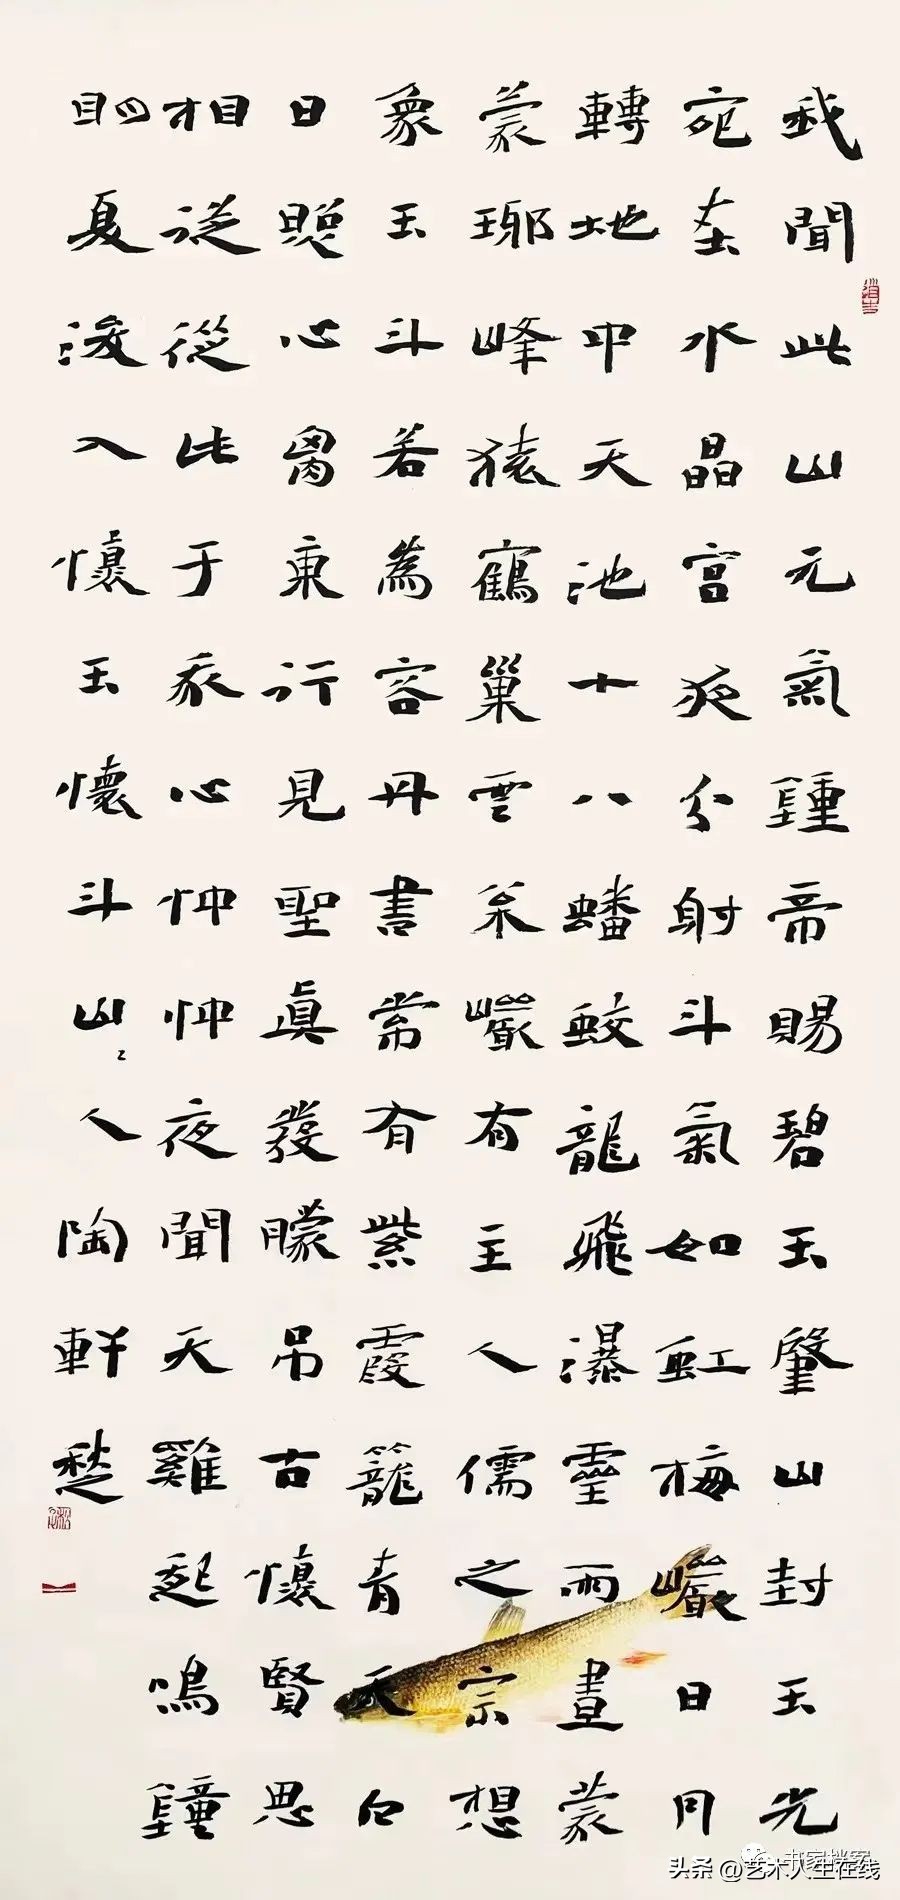 我聞此山元氣鍾帝賜碧玉肇山封玉光
宛在水晶宮夜分射斗氣如虹梅巖日月
轉地中天池十八蟠蛟龍飛瀑靈雨晝蒙
蒙瑯峰猿鶴巢雲枀巖有主人儒之宗想
象玉斗若為容丹書常有紫霞籠青天白
日照心胷東行見聖真發朦吊古懷賢思
相從從此于我心忡忡夜聞天雞起鳴鐘
明夏浚入懷玉懷斗山〻人陶軒
书家档案
头条 @艺术人生在线